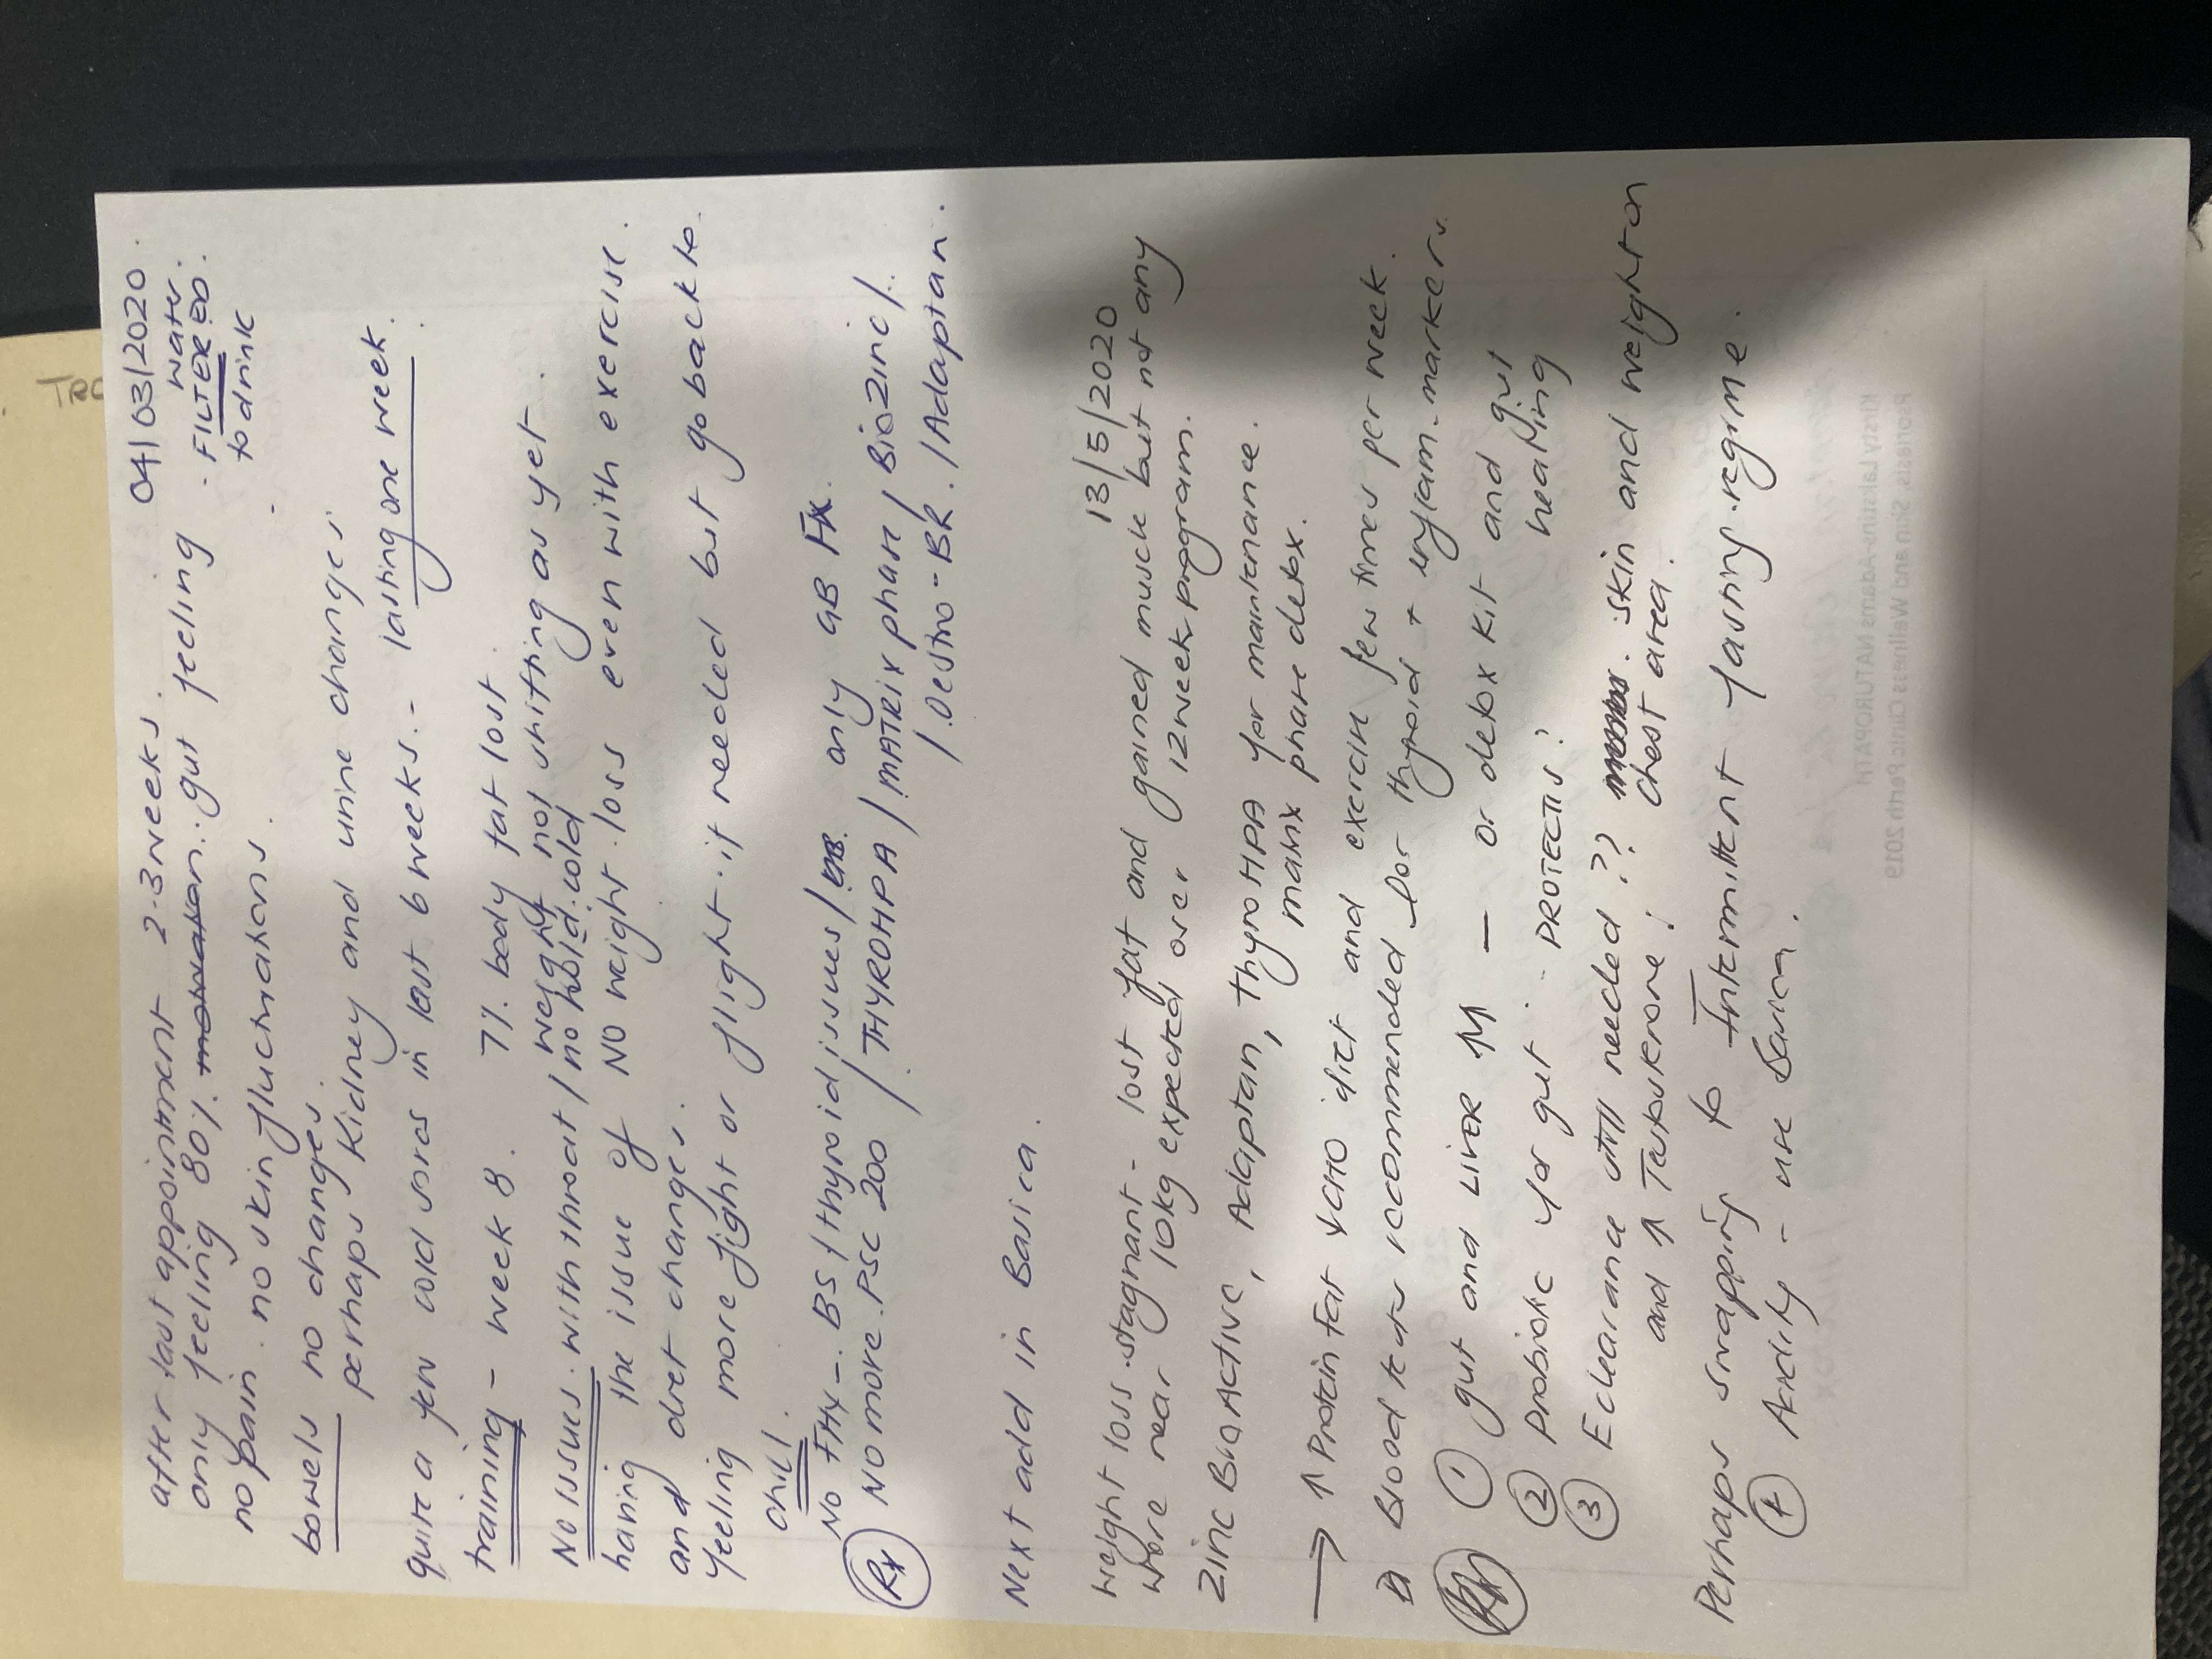 after last appointment 2-3 weeks. 04/03/2020.
only feeling 80%. gut feeling - FILTERED water.
no pain. no skin fluctuations. to drink
bowels no changes.
perhaps kidney and urine changes
quite a few cold sores in last 6 weeks. - lasting one week.
training - week 8. 7% body fat lost.
No issues. with throat / weight not shifting as yet.
no hold. cold
having the issue of NO weight loss even with exercise.
and diet changes.
feeling more fight or flight. if needed but go back to.
chill.
No FHx -. BS / thyroid issues / only GB Fx.
Rx No more. PSC 200 / THYROHPA / MATRIX phase / BioZinc /.
/. Oestro-BR. / Adaptan.
Next add in Basica.
13/5/2020
weight loss. stagnant - lost fat and gained muscle but not any
more near 10kg expected over 12 week program.
Zinc BioActive, Adaptan, ThyroHPA for maintenance.
matrix phase detox.
→ ↑ Protein Fat ↓ CHO diet and exercise few times per week.
Blood tests recommended for thyroid + inflam. markers.
① gut and LIVER - or detox kit and gut
healing
② Probiotic for gut.. PROTECTIS?
③ Eclearance still needed ?? skin and weight on
and ↑ Testosterone! chest area.
Perhaps swapping to Intermittent fasting regime.
Acidity - use Basica.
TRC
Psoriasis, Skin and Wellness Clinic Perth 2019
NATUROPATH